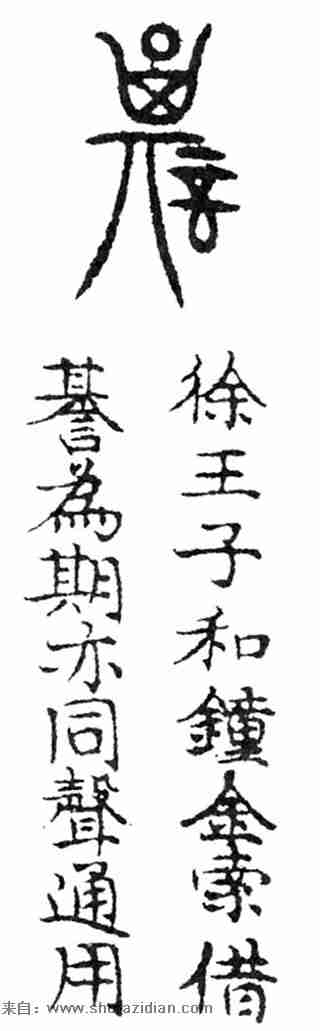 徐王子和鐘金索借
諅為期亦同聲通用
来自：www.shufazidian.com